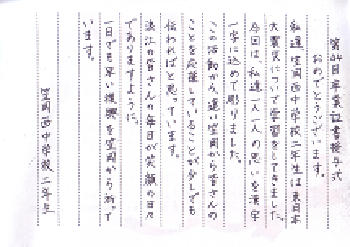 第64回卒業証書授与式
おめでとうございます。
私達笠岡西中学校二年生は東日本
大震災について学習をしてきました。
今回は、私達一人一人の思いを漢字
一字に込めて彫りました。
この活動から、遠い笠岡から皆さんの
ことを応援していることが少しでも
伝わればと思っています。
浪江の皆さんの毎日が笑顔の日々
でありますように。
一日でも早い復興を笠岡から祈って
います。
笠岡西中学校二年生